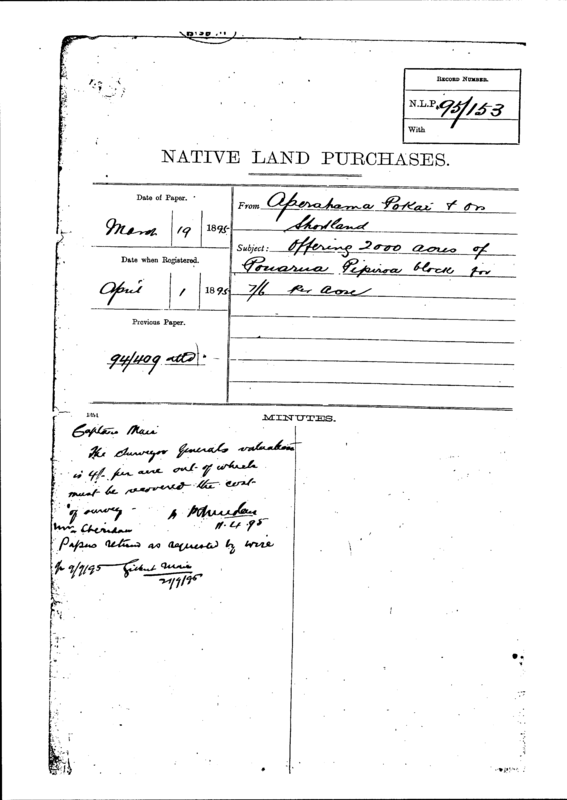 RECORD NUMBER.
N.L.P. 95/153
With
NATIVE LAND PURCHASES.
Date of Paper.
March 19 1895
Date when Registered.
April 1 1895
Previous Paper.
94/409 attd.
From Aperahama Pokai & ors
Shortland
Subject: Offering 2000 acres of
Pouarua Pipiroa block for
7/6 per acre
MINUTES.
Captain Mair
The Surveyor Generals valuation
is 4/- per acre out of which
must be recovered the cost
of survey
11.4.95
Mr Sheridan
Papers return as requested by wire
9/9/95 Gilbert Mair
21/9/95